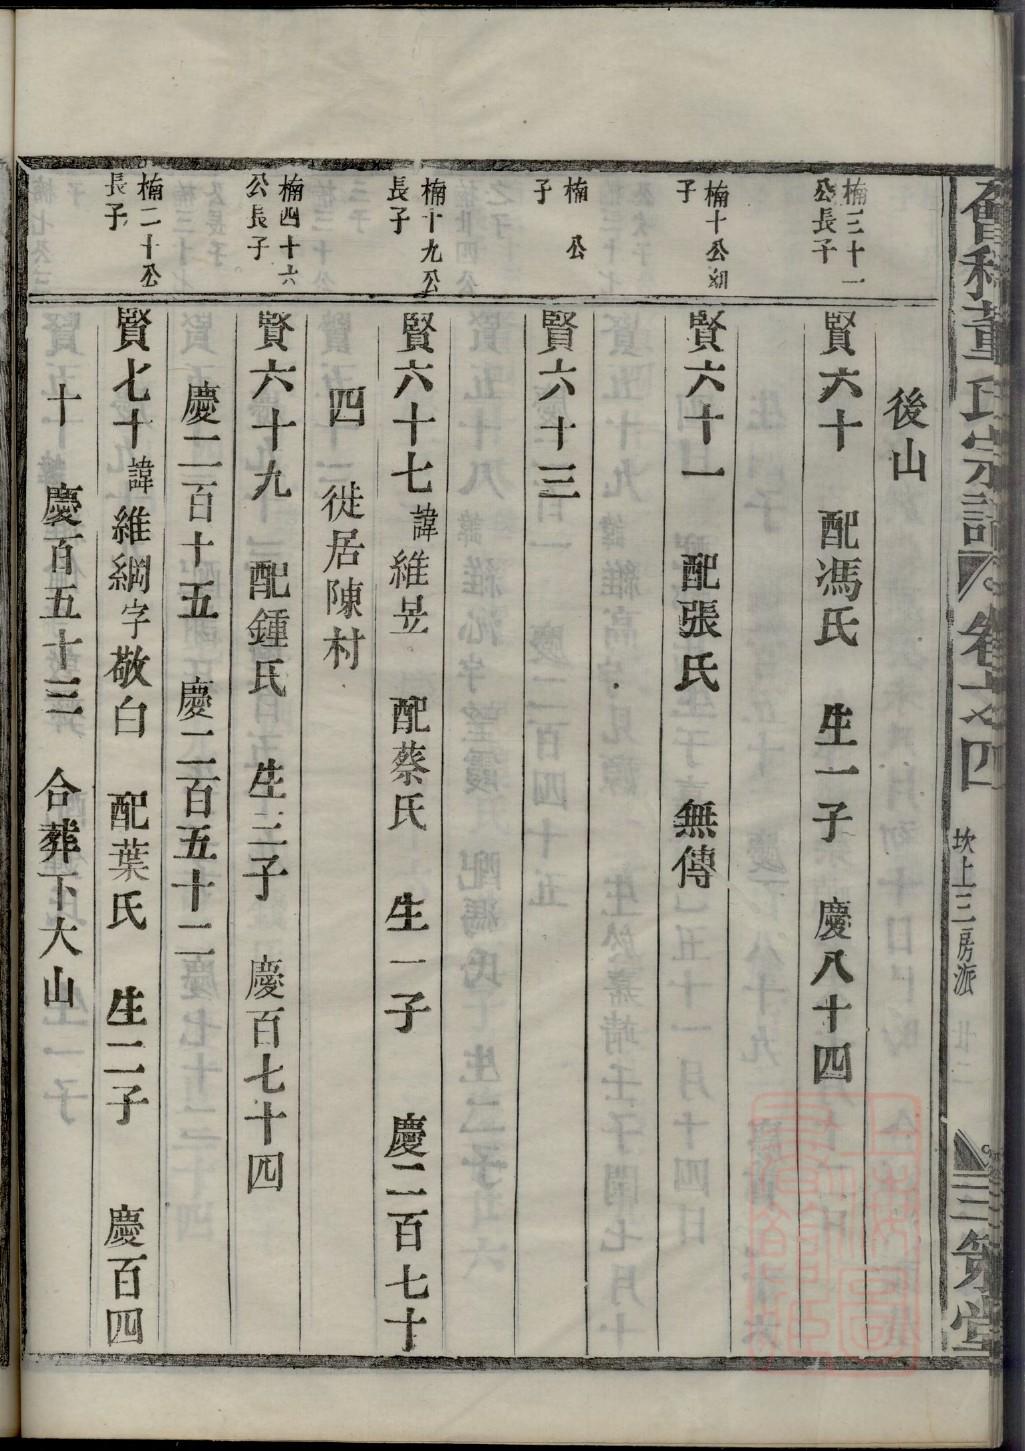 會稽董氏宗譜 卷之四 坎上三房派 廿二 三策堂
後山
楠三十一公長子
賢六十 配馮氏 生一子 慶八十四
楠十公嗣子
賢六十一 配張氏 無傳
楠 公子
賢六十三
楠十九公長子
賢六十七諱維昱 配蔡氏 生一子 慶二百七十
四 徙居陳村
楠四十六公長子
賢六十九 配鍾氏 生三子 慶百七十四
慶二百十五 慶二百五十二
楠二十公長子
賢七十諱維綱字敬白 配葉氏 生二子 慶百四
十 慶百五十三 合葬下大山